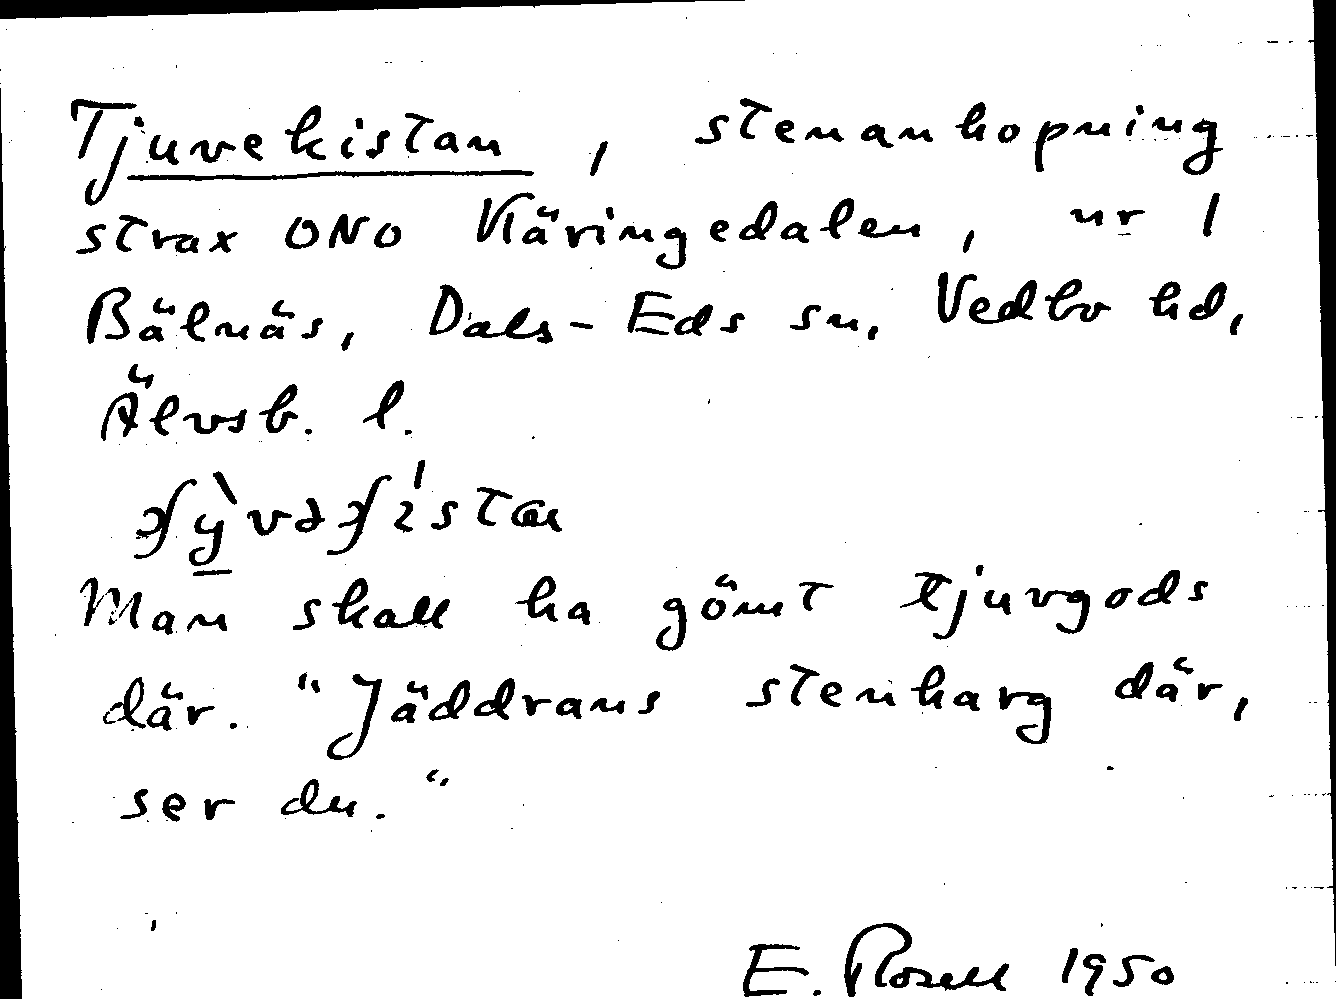 Tjuvekistan, stenanhopning
strax ONO Käringedalen, nr 1
Bälnäs, Dals-Eds sn, Vedbo hd,
Älvsb. l.
Man skall ha gömt tjuvgods
där. "Jäddrans stenharg där,
ser du."
E. Rosell 1950